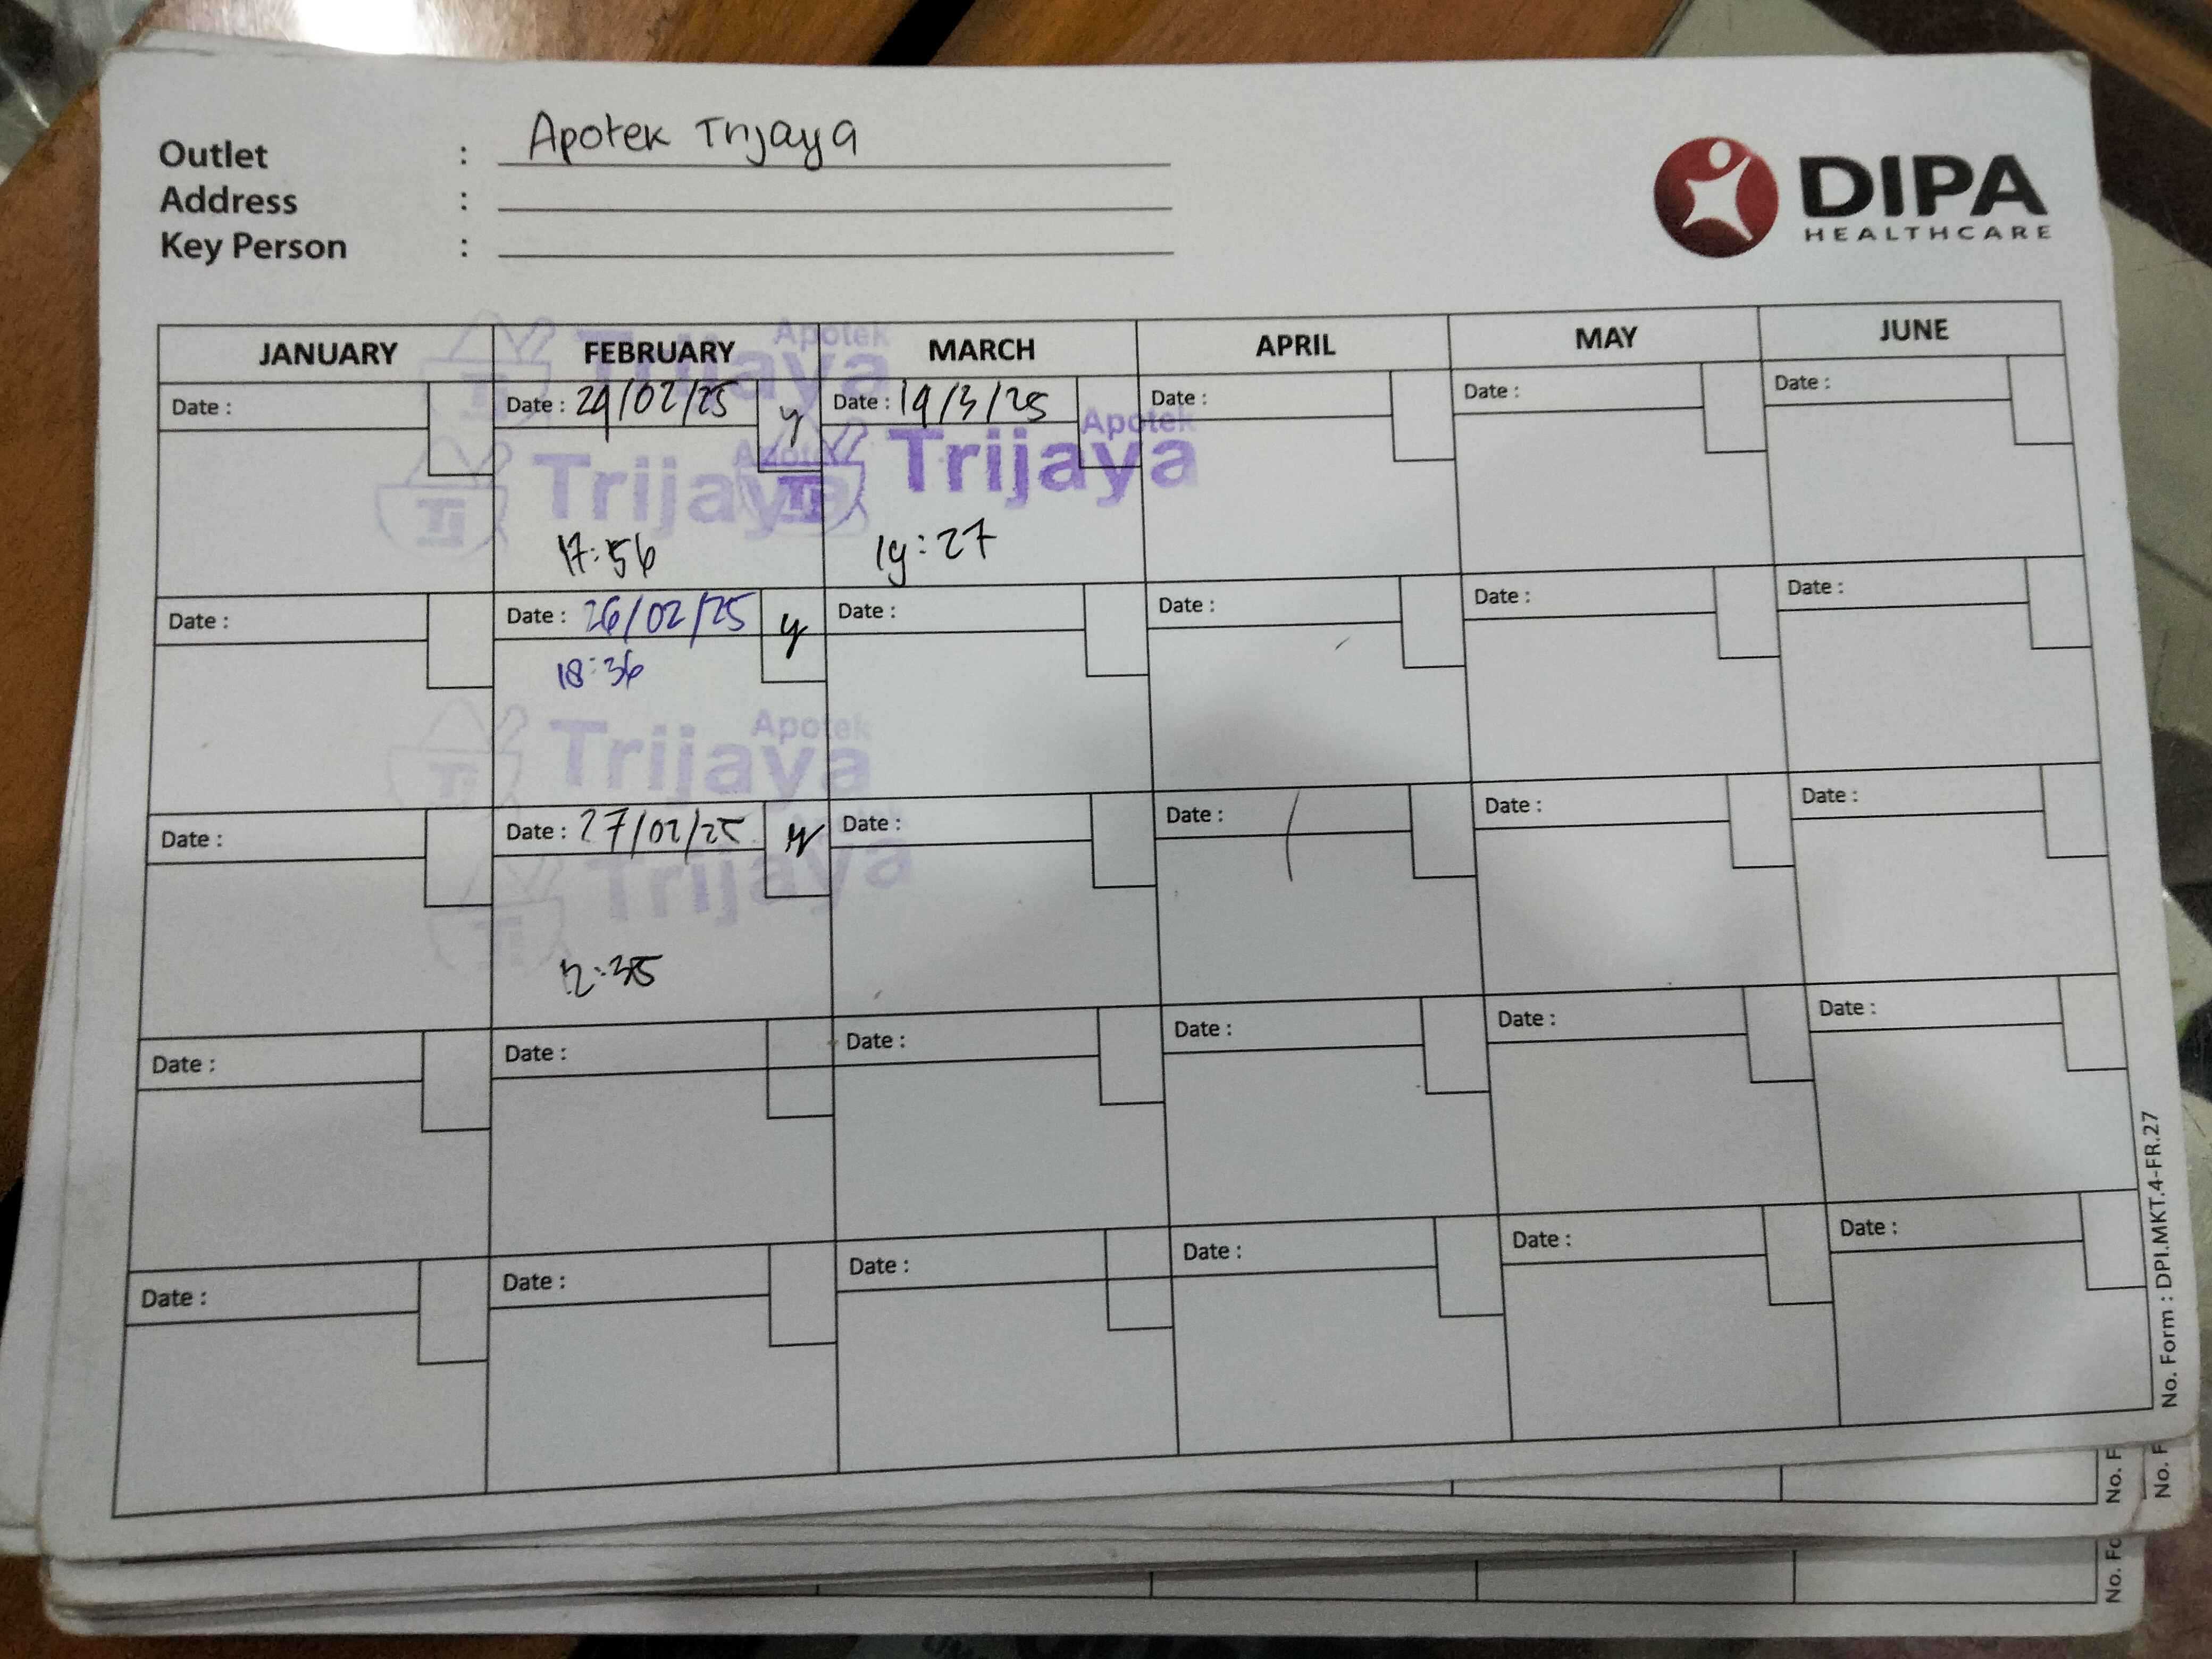 Outlet : Apotek Trijaya
Address :
Key Person :
DIPA
HEALTHCARE
JANUARY FEBRUARY MARCH APRIL MAY JUNE
Date : Date : /02/25 y Date : 19/3/25 Date : Date : Date :
Apotek
Trijaya
Apotek
Trijaya
Apotek
Trijaya
17:56 19:27
Date : Date : 26/02/25 y Date : Date : Date : Date :
18:36
Apotek
Trijaya
Date : Date : 27/02/25 y Date : Date : Date : Date :
Apotek
Trijaya
12:35
Date : Date : Date : Date : Date : Date :
Date : Date : Date : Date : Date : Date :
No. Form : DPI.MKT.4-FR.27
No. F
No. F
No. Fo